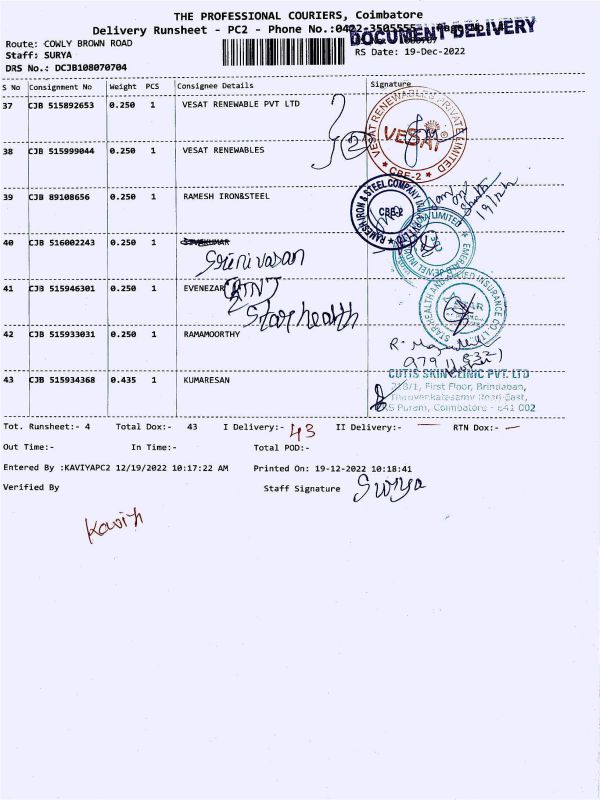 THE PROFESSIONAL COURIERS, Coimbatore
Delivery Runsheet - PC2 - Phone No.:0422-3505555
DOCUMENT DELIVERY
Route: COWLY BROWN ROAD
Staff: SURYA
RS Date: 19-Dec-2022
DRS No.: DCJB108070704
S No Consignment No Weight PCS Consignee Details Signature
37 CJB 515892653 0.250 1 VESAT RENEWABLE PVT LTD
VESAT RENEWABLES PRIVATE LIMITED
VESAT
CBE-2
38 CJB 515999044 0.250 1 VESAT RENEWABLES
39 CJB 89108656 0.250 1 RAMESH IRON&STEEL
RAMESH IRON & STEEL COMPANY
CBE-2
19/12/22
40 CJB 516002243 0.250 1
Srinivasan
41 CJB 515946301 0.250 1 EVENEZAR
Star health
STAR HEALTH AND ALLIED INSURANCE CO. LTD
42 CJB 515933031 0.250 1 RAMAMOORTHY
43 CJB 515934368 0.435 1 KUMARESAN
CUTIS SKIN CLINIC PVT. LTD
218/1, First Floor, Brindaban,
Thiruvenkatasamy Road East,
RS Puram, Coimbatore - 641 002
Tot. Runsheet:- 4 Total Dox:- 43 I Delivery:- 43 II Delivery:- — RTN Dox:- —
Out Time:- In Time:- Total POD:-
Entered By :KAVIYAPC2 12/19/2022 10:17:22 AM Printed On: 19-12-2022 10:18:41
Verified By Staff Signature Surya